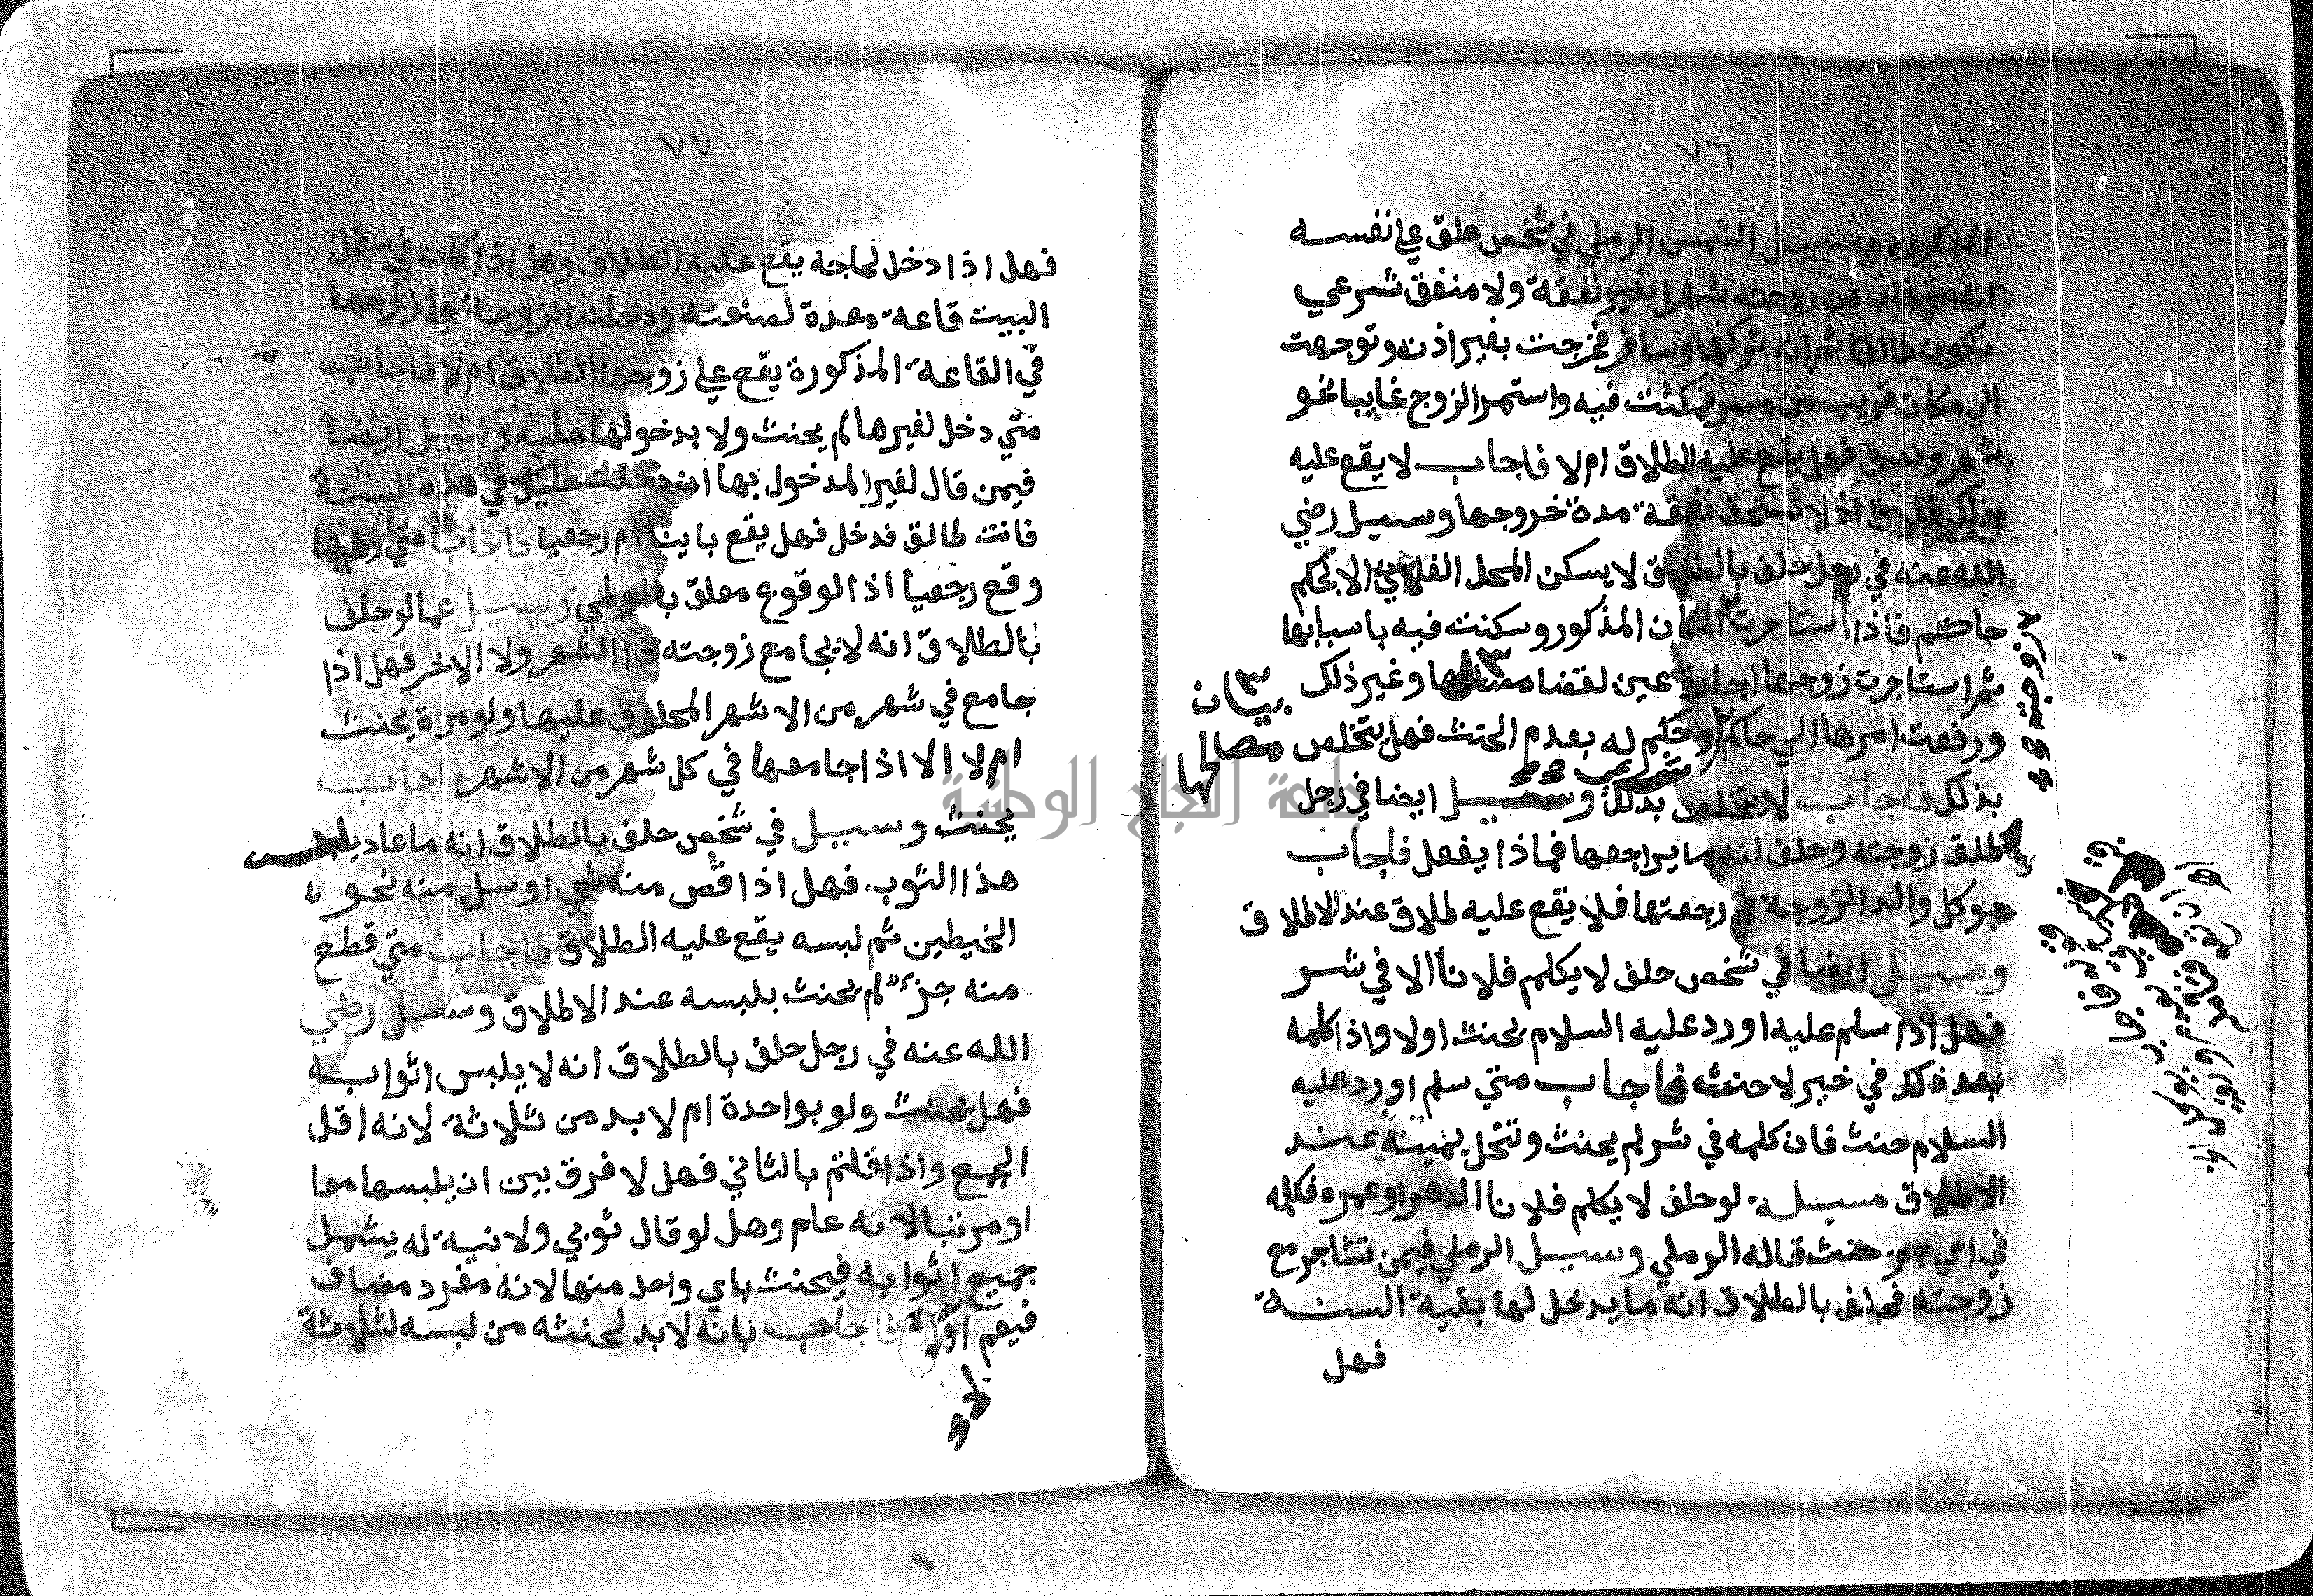 ٧٦
المذكوره وسيل الشمس الرملي في شخص علق علي نفسه
انه متي غاب عن زوجته شهرا بغير نفقة ولا منفق شرعي
تكون طالقا ثم انه تركها وسافر فخرجت بغير اذنه وتوجهت
الي مكان قريب من مصر فمكثت فيه واستمر الزوج غايبا نحو
شهر ونصف فهل يقع عليه الطلاق ام لا فاجاب لا يقع عليه
بذلك طلاق اذ لا تستحق نفقة مدة خروجها وسيل رضي
الله عنه في رجل حلف بالطلاق لا يسكن المحل الفلاني الا بحكم
حاكم فاذا استاجرت المكان المذكور وسكنت فيه باسبابها
ثم استاجرت زوجها اجارة عين لقضا مصالحها وغير ذلك
ورفعت امرها الي حاكم وحكم له بعدم الحنث فهل يتخلص
بذلك فاجاب لا يتخلص بذلك وسيل ايضا في رجل
طلق زوجته وحلف انه ما يراجعها فماذا يفعل فاجاب
يوكل والد الزوجة في رجعتها فلا يقع عليه طلاق عند الاطلاق
وسيل ايضا في شخص حلف لا يكلم فلانا الا في شر
فهل اذا سلم عليه او رد عليه السلام يحنث او لا واذا كلمه
بعد ذلك في خير لا حنث فاجاب متي سلم او رد عليه
السلام حنث فان كلمه في شر لم يحنث وتنحل يمينه عند
الاطلاق مسيلة لو حلف لا يكلم فلانا الدهر او عمره فكلمه
في اي جز حنث قاله الرملي وسيل الرملي فيمن تشاجر مع
زوجته فحلف بالطلاق انه ما يدخل لها بقية السنة
فهل
زوجته
بيان
مصالحها
٧٧
فهل اذا دخل لحاجة يقع عليه الطلاق وهل اذا كان في سفل
البيت قاعة معدة لصنعته ودخلت الزوجة علي زوجها
في القاعة المذكورة يقع علي زوجها الطلاق ام لا فاجاب
متي دخل لغيرها لم يحنث ولا بدخولها عليه وسيل ايضا
فيمن قال لغير المدخول بها ان دخلت عليك في هذه السنة
فانت طالق فدخل فهل يقع باينا ام رجعيا فاجاب متي وطيها
وقع رجعيا اذ الوقوع معلق بالوطي وسيل عما لو حلف
بالطلاق انه لا يجامع زوجته في الشهر ولا الاخر فهل اذا
جامع في شهر من الاشهر المحلوف عليها ولو مرة يحنث
ام لا الا اذا جامعها في كل شهر من الاشهر فاجاب
يحنث وسيل في شخص حلف بالطلاق انه ما عاد يلبس
هذا الثوب فهل اذا قص منه شي او سل منه نحو
الخيطين ثم لبسه يقع عليه الطلاق فاجاب متي قطع
منه جزء لم يحنث بلبسه عند الاطلاق وسيل رضي
الله عنه في رجل حلف بالطلاق انه لا يلبس اثوابه
فهل يحنث ولو بواحدة ام لا بد من ثلاثة لانه اقل
الجمع واذا قلتم بالثاني فهل لا فرق بين ان يلبسها معا
او مرتبا لانه عام وهل لو قال ثوبي ولا نية له يشمل
جميع اثوابه فيحنث باي واحد منها لانه مفرد مضاف
فيعم او لا فاجاب بانه لا بد لحنثه من لبسه لثلاثة
جامعة النجاح الوطنية